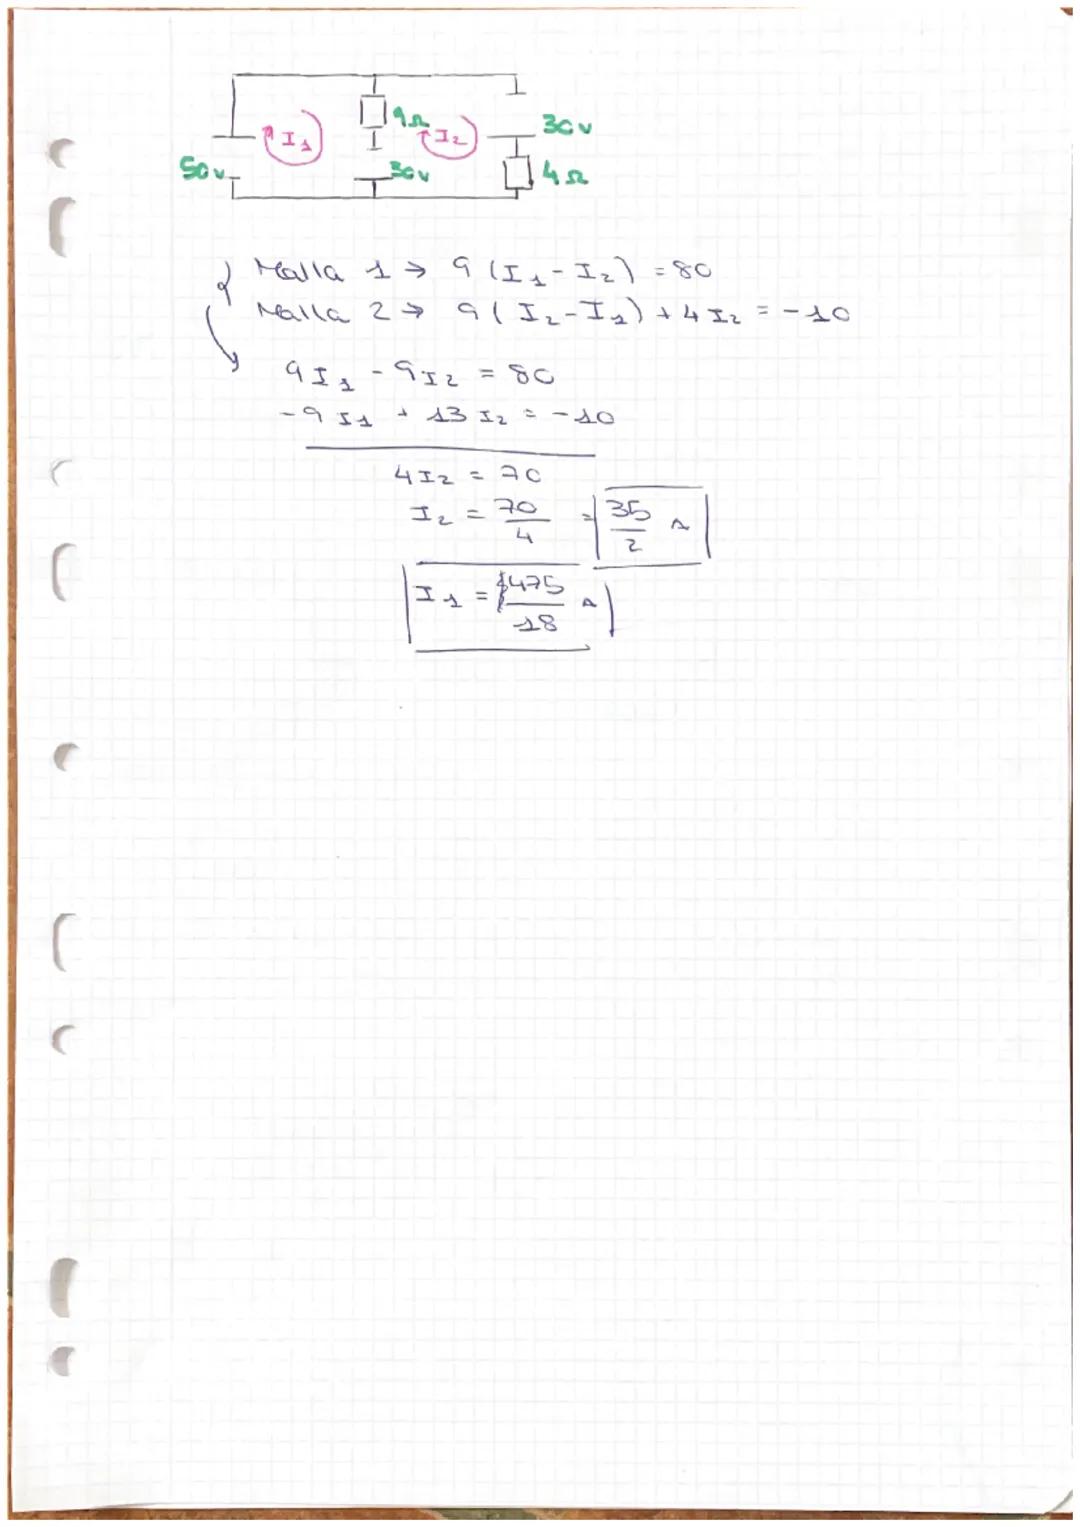 9Ω
I1
I2
30v
50v
30v
4Ω
Malla 1 → 9 (I1 - I2) = 80
Malla 2 → 9 (I2 - I1) + 4 I2 = -10
9 I1 - 9 I2 = 80
-9 I1 + 13 I2 = -10
4 I2 = 70
I2 = 70/4 = 35/2 A
I1 = 475/18 A